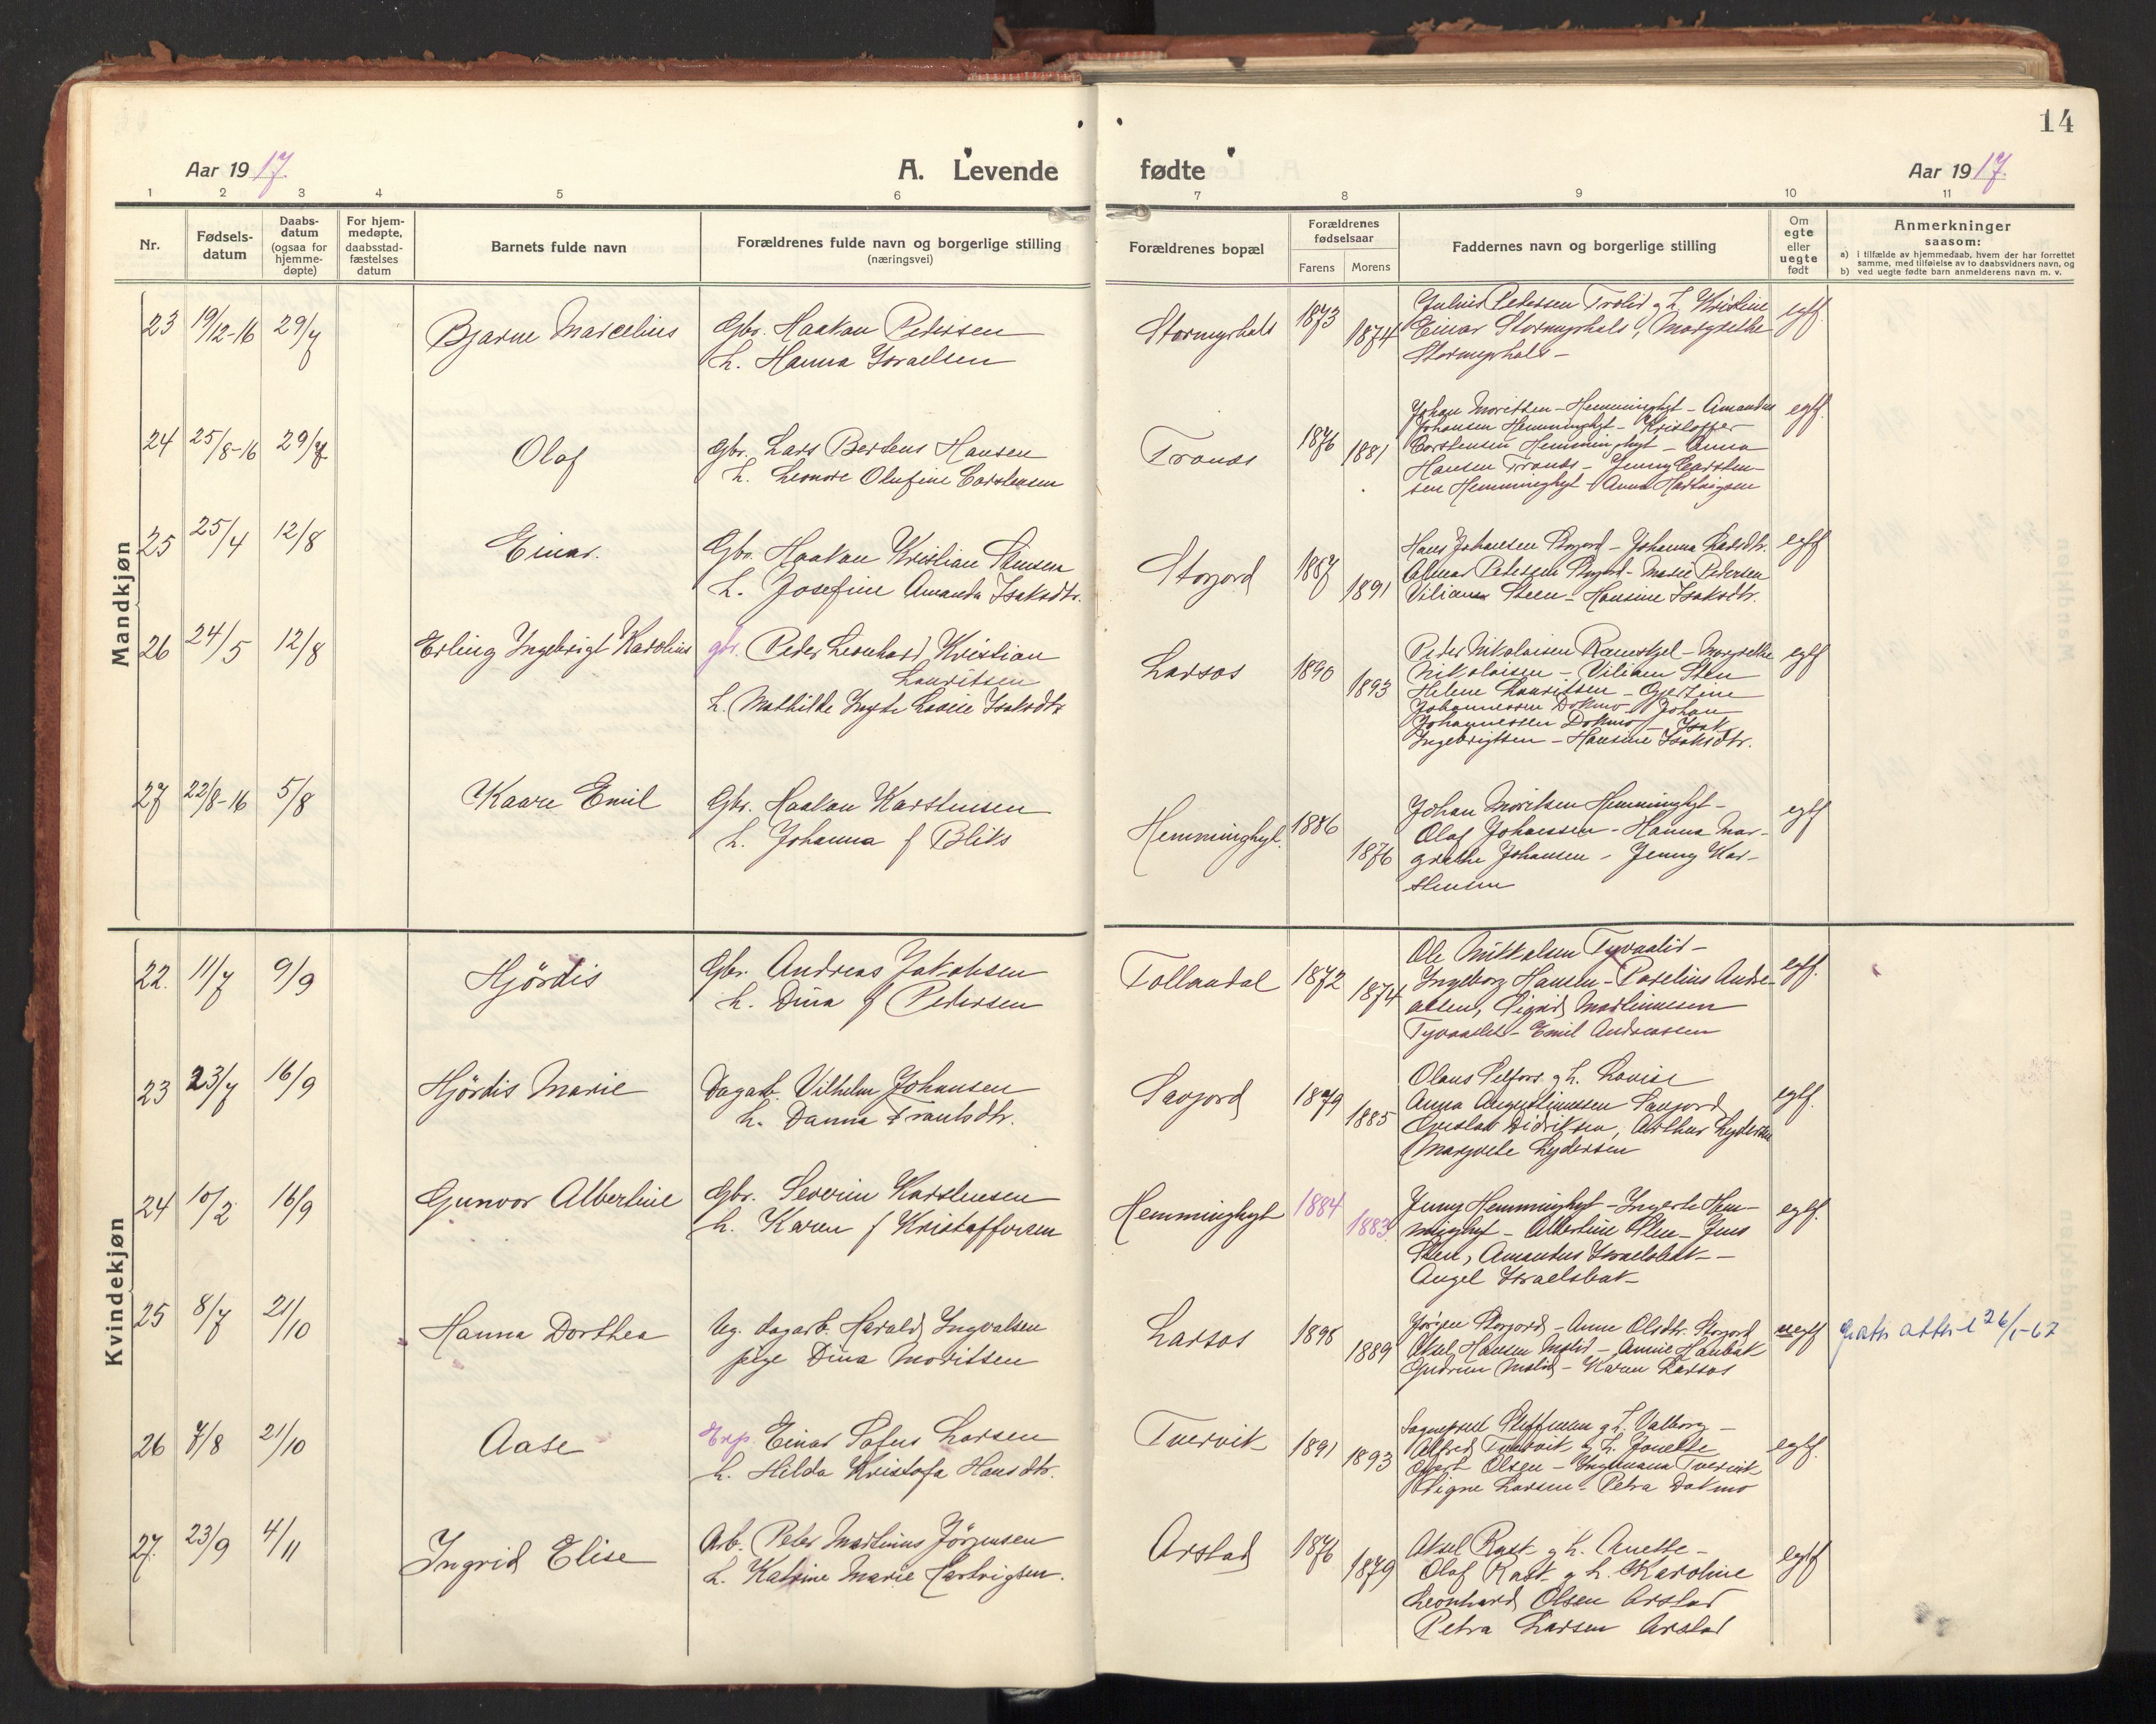 14
Aar 1917. A. Levende fødte Aar 1917.
1 2 3 4 5 6 7 8 9 10 11
Nr.
Fødsels-
datum
Daabs-
datum
(ogsaa for
hjemme-
døpte)
For hjem-
medøpte,
daabsstad-
fæstelses
datum
Barnets fulde navn
Forældrenes fulde navn og borgerlige stilling
(næringsvei)
Forældrenes bopæl
Forældrenes
fødselsaar
Farens Morens
Faddernes navn og borgerlige stilling
Om
egte
eller
uegte
født
Anmerkninger
saasom:
a) i tilfælde av hjemmedaab, hvem der har forrettet
samme, med tilføielse av to daabsvidners navn, og
b) ved uegte fødte barn anmelderens navn m. v.
Mandkjøn
23 19/12-16 29/7 Bjarne Marcelius
Gbr. Haakon Pedersen
h. Hanna Israelsen
Stormyrhals 1873 1874
Julius Pedersen Trolid g h. Kristine
Einar Stormyrhals, Margrethe
Stormyrhals -
egtf.
24 25/8-16 29/7 Olaf
Gbr. Lars Bertens Hansen
h. Leonore Olufine Carstensen
Tranes 1876 1881
Johan Moritsen - Hemminghyt - Amandus
Johansen Hemminghyt - Kristoffer
Carstensen Hemminghyt - Anna
Hansen Tranes - Jenny Carsten-
sen Hemminghyt - Anna Hartvigsen
egtf.
25 25/4 12/8 Einar.
Gbr. Haakon Kristian Simsen
h. Josefine Amanda Isaksdtr.
Storjord 1887 1891
Hans Johansen Storjord - Johanna Larsdtr.
Almar Petersen Storjord - Marie Pedersen
Viliam Steen - Hansine Isaksdtr.
egtf
26 24/5 12/8 Erling Ingebrigt Karolius
gbr. Peder Leonhard Kristian
Lauritsen
h. Mathilde Ingte Lovise Isaksdtr
Larsos 1890 1893
Peder Nikolaisen Ramskjel - Margrethe
Nikolaisen - Viliam Sten
Helene Lauritsen - Gjertine
Johannessen Dokmo - Johan
Johannessen Dokmo - Isak
Ingebrigtsen - Hansine Isaksdtr.
egtf
27 22/8-16 5/8 Kaare Emil
Gbr. Haakon Karstensen
h. Johanna f Bliks
Hemminghyt. 1886 1876
Johan Moritsen Hemminghyt -
Olaf Johanssen - Hanna Mar-
grethe Johansen - Jenny Kar-
stensen
egtf
Kvindekjøn
22. 11/7 9/9 Hjördis
Gbr. Andreas Jakobsen
h. Dina f Pedersen
Tollaadal 1872 1874
Ole Mikkalsen Tyvaalid -
Ingeborg Hansen - Paselius Andre-
assen, Sigrid Martinussen
Tyvaalid - Emil Andreassen
egtf.
23 23/7 16/9 Hjördis Marie
Dagarb. Vilhelm Johansen
h. Danna Frantsdtr.
Savjord 1879 1885
Olaus Selfors g h. Lovise
Anna Augustinussen Savjord
Gustav Didriksen, Arthur Lydersen
Margrete Lydersen
egtf.
24 10/2 16/9 Gunvor Albertine
Gbr. Severin Karstensen
h. Karen f Kristoffersen
Hemminghyt 1884 1883
Jenny Hemminghyt - Ingerte Hem-
minghyt - Albertine Sten - Jens
Sten, Amandus Israelsbak -
Angel Israelsbak -
egtf.
25 8/7 21/10 Hanna Dorthea
Ug. dagarb. Harald Ingvalsen
pige Dina Moritsen
Larsos 1895 1889
Jörgen Storjord - Anne Olsdtr. Storjord
Aksel Hansen Molid - Annie Haubak
Gudrun Molid - Karen Larsos
uegtf
26/1-67
26 7/8 21/10 Aase
Exp. Einar Sofus Larsen
h. Hilda Kristofa Hansdtr.
Tvervik 1891 1893
Sogneprest Steffensen g h. Valborg -
Alfred Tvervik g h. Jonette
Evert Olsen - Ingemana Tvervik
Signe Larsen - Petra Dokmo
egtf.
27. 23/9 4/11 Ingrid Elise
Arb. Peter Martinus Jörgensen
h. Katrine Marie Hartvigsen.
Arstad 1876 1879
Aksel Rast g h. Anette -
Olaf Rast g h. Karoline
Leonhard Olsen Arstad
Petra Larsen Arstad
egtf